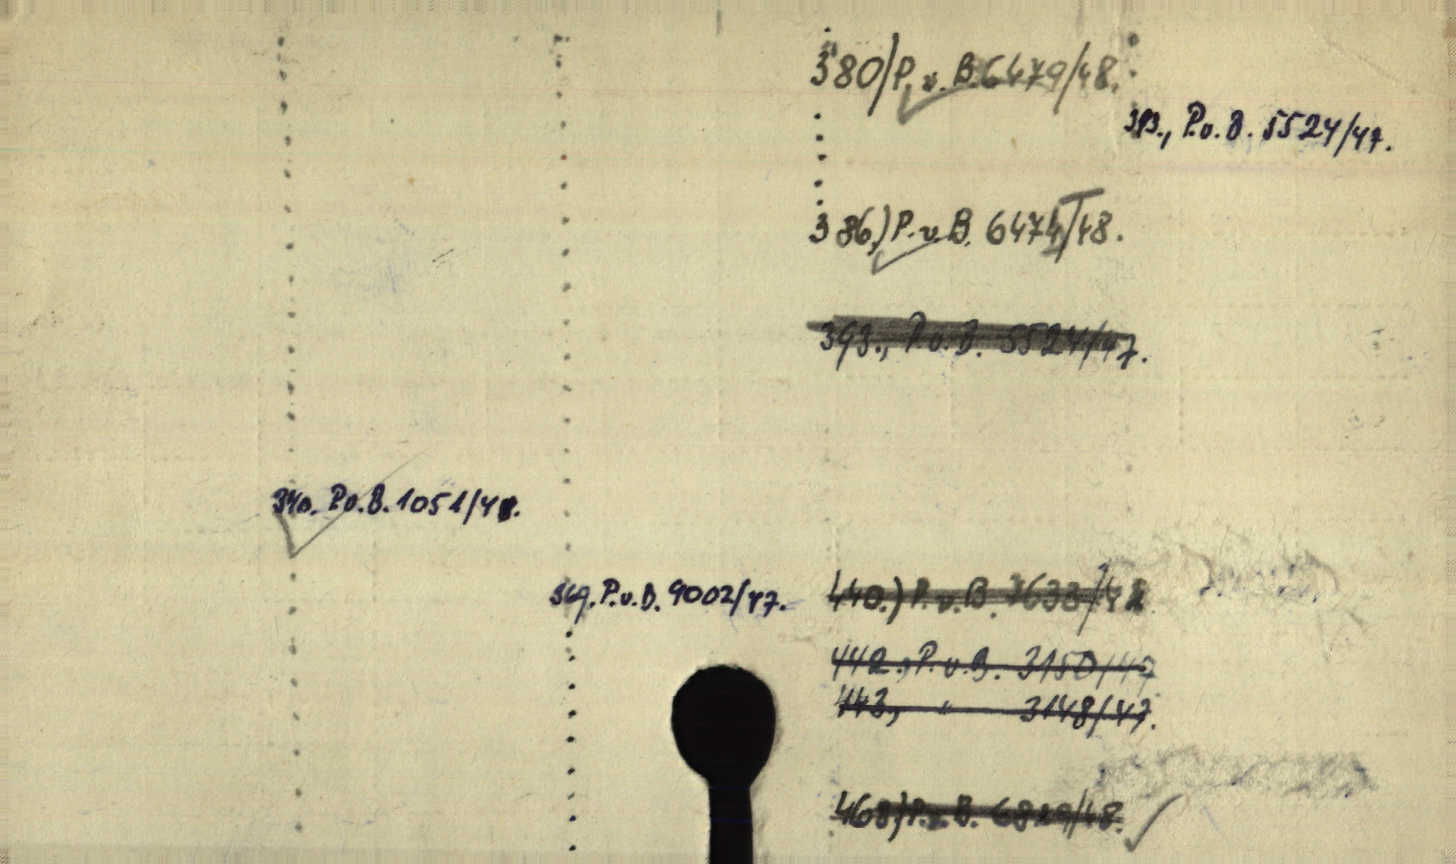 380/P. v. B. 6479/48.
393., P.v.B. 5524/47.
386.) P. v. B. 6474/48.
393., P.v.B. 5524/47.
340. P.v.B. 1051/48.
369. P.v.B. 9002/47.
440.) P. v. B. 7633/48
442., P.v.B. 3150/47
443, " 3148/47.
468) P.v.B. 6829/48.